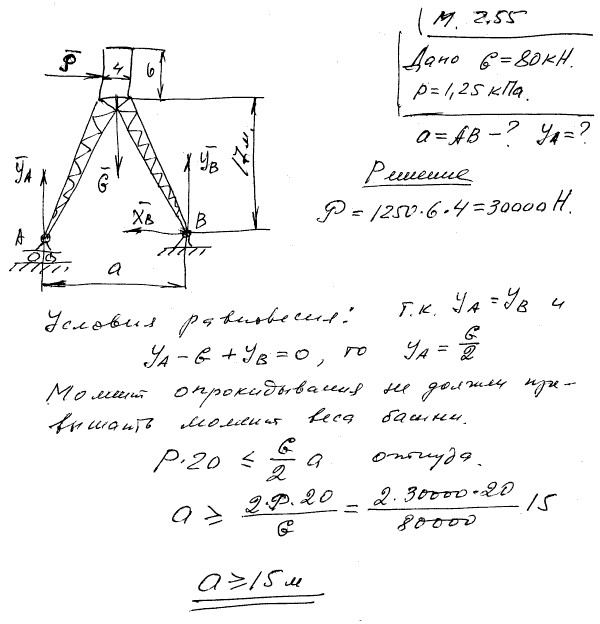 М. 2.55
Дано G=80кН.
p=1,25кПа.
a=AB-? YA=?
Решение
P=1250·6·4=30000Н.
P
4
6
17м.
YA
G
YB
XB
A
B
a
Условия равновесия: т.к. YA=YB и
YA-G+YB=0, то YA=G/2
Момент опрокидывания не должен пре-
вышать момент веса башни.
P·20 ≤ G/2 a откуда.
a ≥ 2·P·20/G = 2·30000·20/80000 15
a≥15м